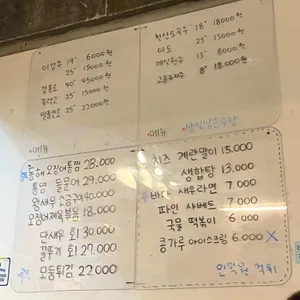 이강주 19° 6000원
25° 15000원
감홍로 40° 45000원
죽력고 25° 15000원
25° 22000원
한산소곡주 18° 18000원
이도 25° 15000원
매실원주 13° 8000원
8° 18.000원
메뉴
오징어통찜 28.000
통영 돌문어 29.000
왕새우 소금구이 40.000
오징어제육볶음 18.000
단새우 회 30.000
깔뚜기 회 27.000
모둠튀김 22.000
메뉴
치즈 계란말이 15.000
생합탕 13.000
새우라면 7.000
파인 샤베트 7.000
국물 떡볶이 6.000
콩가루 아이스크림 6.000 X